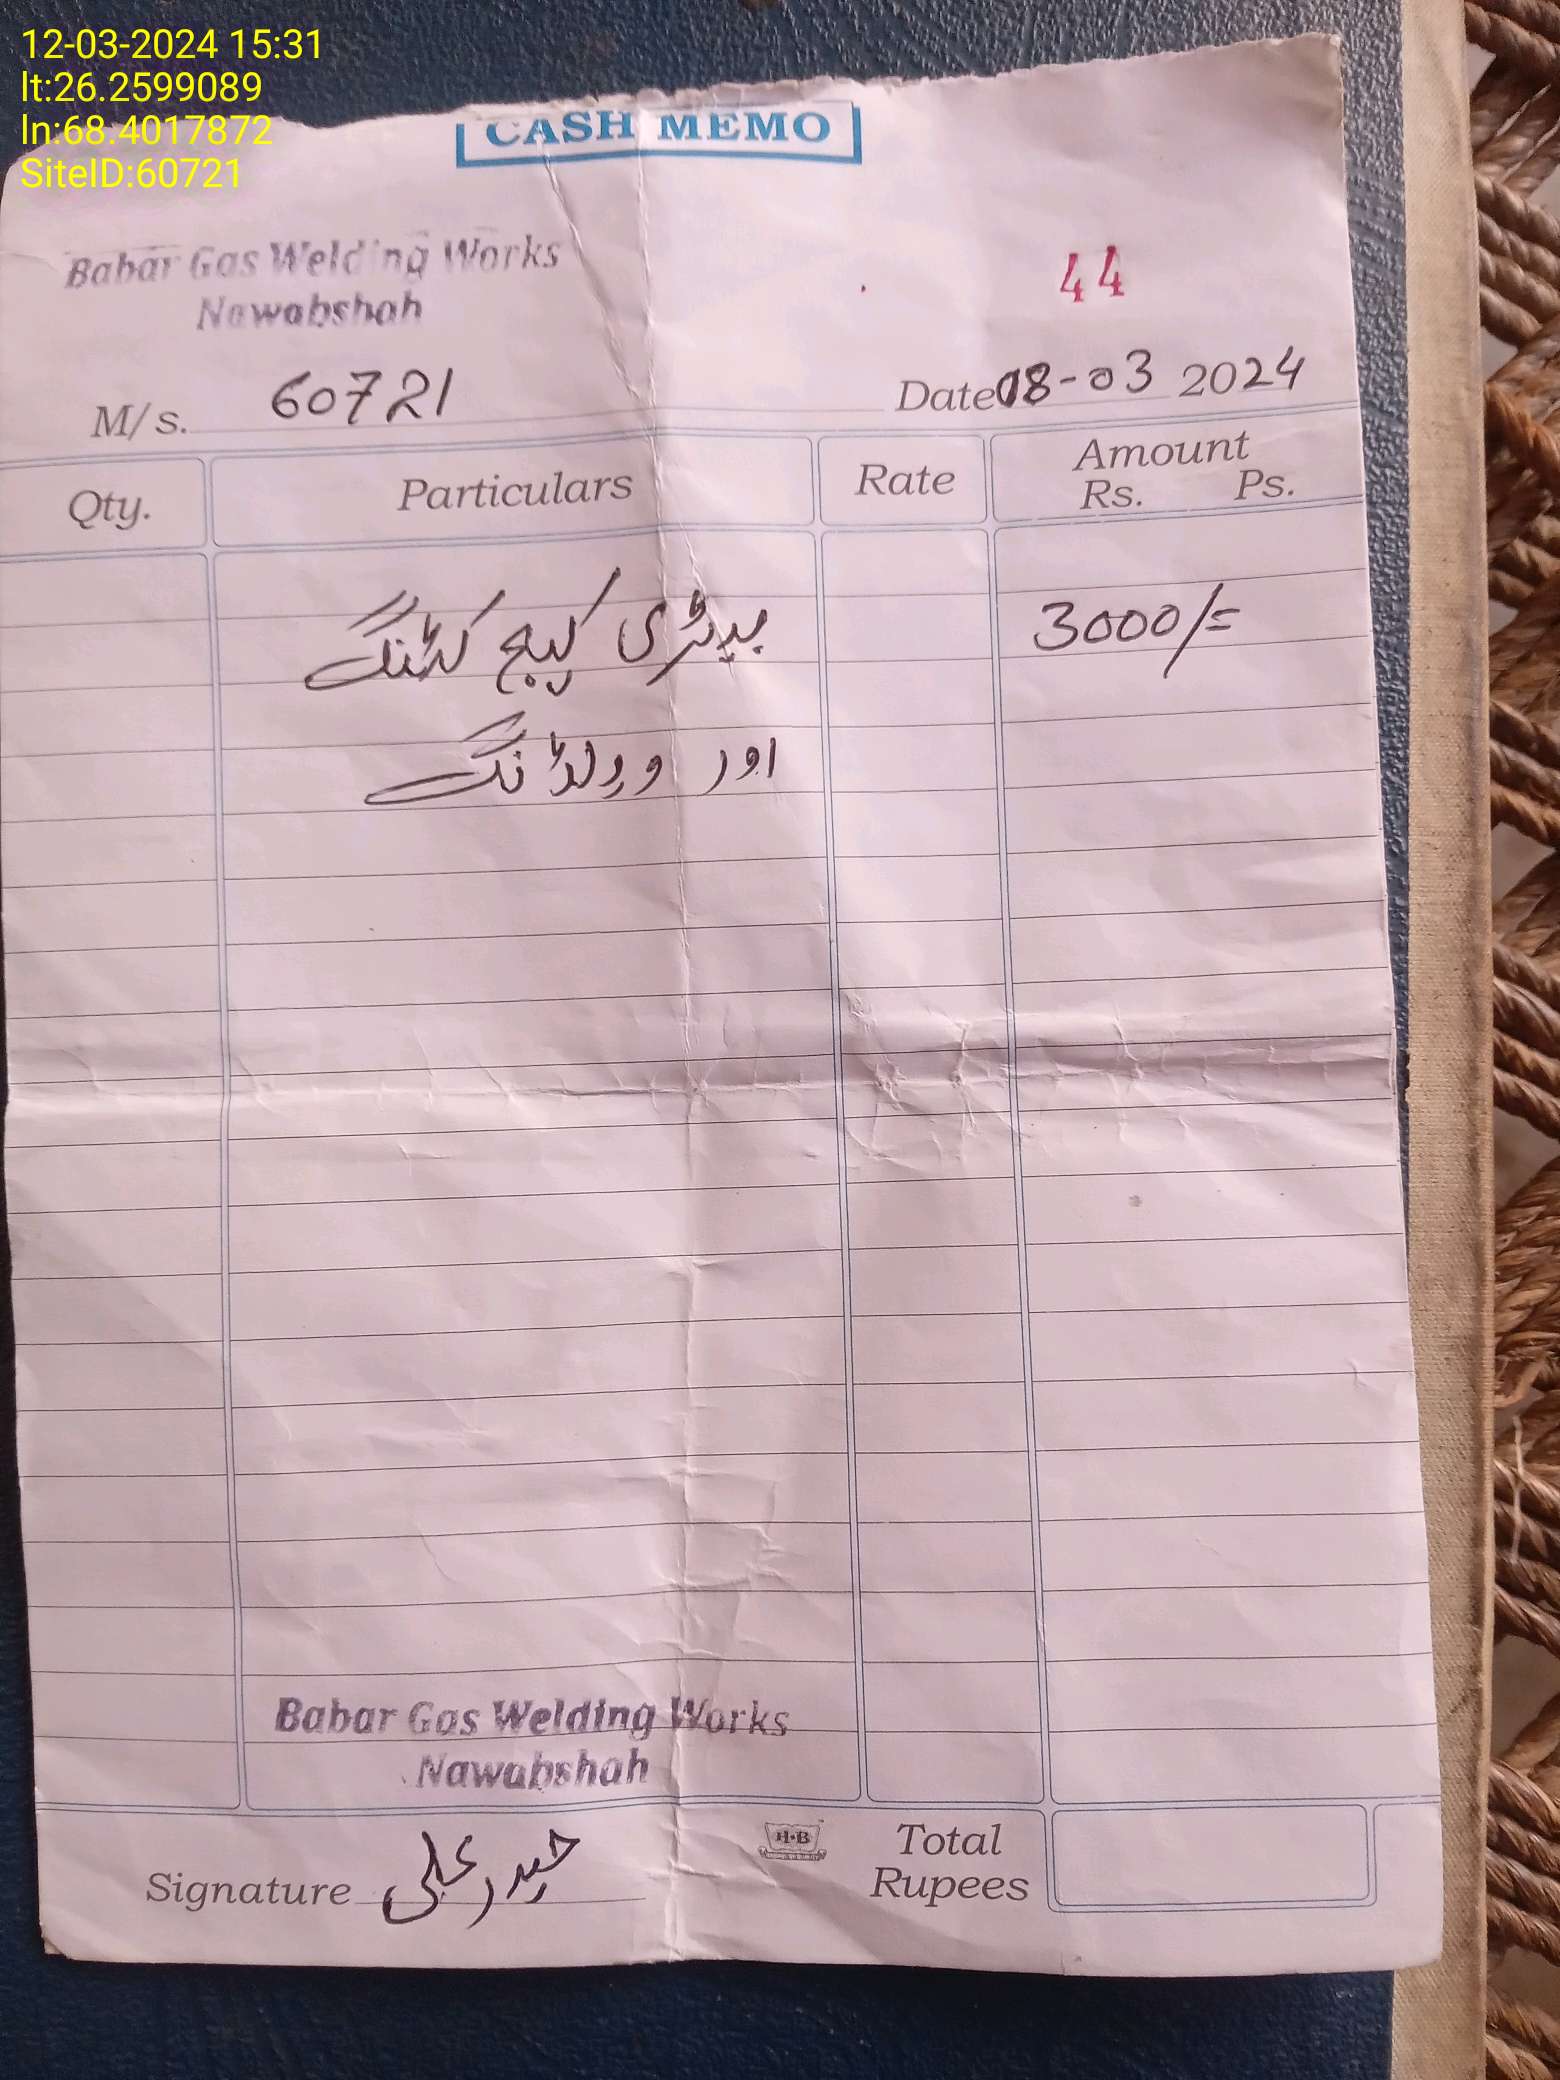 12-03-2024 15:31
lt:26.2599089
ln:68.4017872
SiteID:60721
CASH MEMO
Babar Gas Welding Works
Nawabshah
44
M/s. 60721
Date 08-03 2024
Qty. Particulars Rate Amount
Rs. Ps.
بیٹری کیج کٹنگ 3000/=
اور ویلڈنگ
Babar Gas Welding Works
Nawabshah
Signature حیدر علی
H·B
Total
Rupees